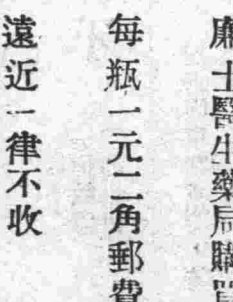 廉士醫生藥局購買
每瓶一元二角郵費
遠近一律不收